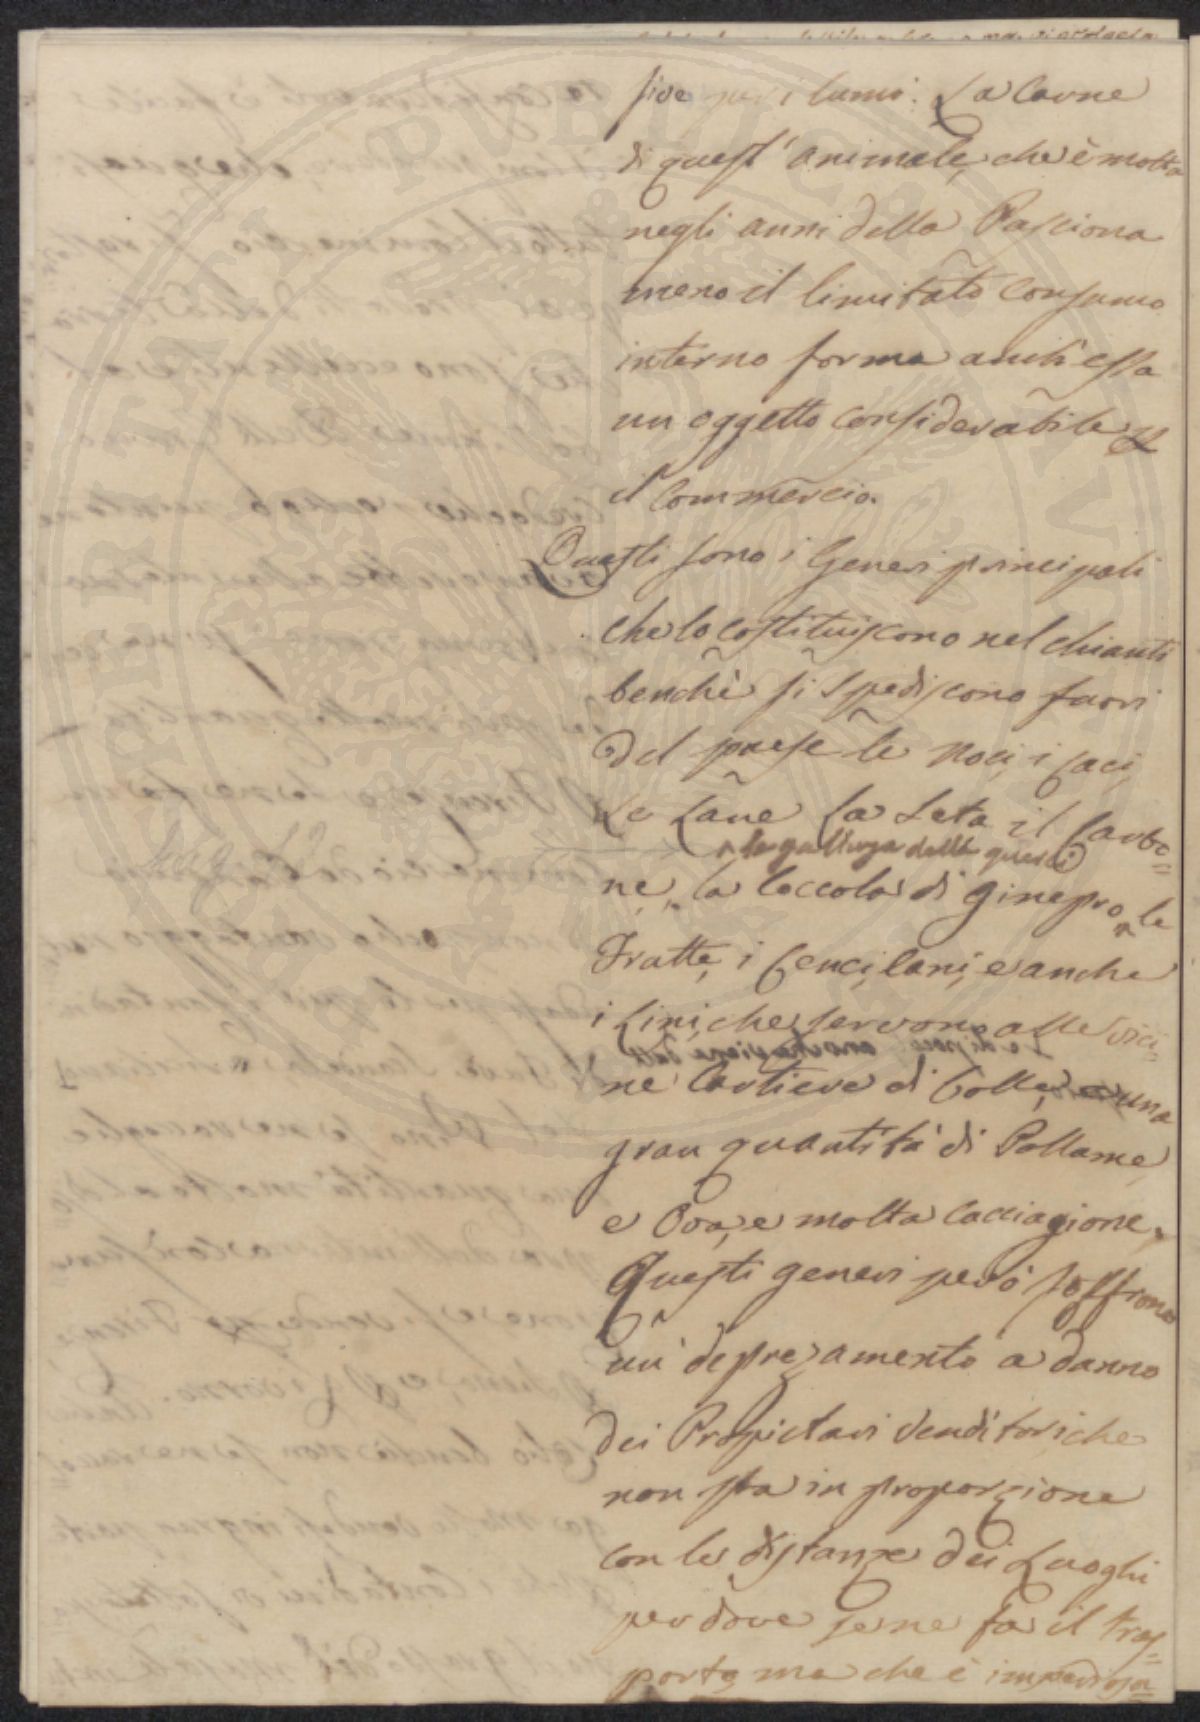 sive per i lumi. La Carne
di quest'animale, che è molta
negli anni della Pasciona
meno il limitato consumo
interno forma anch'essa
un oggetto considerabile p
il Commercio.
Questi sono i Generi principali
che lo costituiscono nel chianti
benchè si spediscono fuori
del paese le noci, i caci,
Le Lane La Seta il Carbo=
la gallonza delle querci
ne, la Coccola di Ginepro, le
Fratte, i Cenci, lani, e anche
i Lini, che servono alle vici=
ne Cartiere di Colle, una
gran quantità di Pollame,
e Ova, e molta cacciagione.
Questi generi però soffrono
un deprezamento a danno
dei Propietari Venditori, che
non sta in proporzione
con le distanze dei Luoghi
per dove se ne fa il tras=
porto, ma che è
PERITATI PUBLICAE